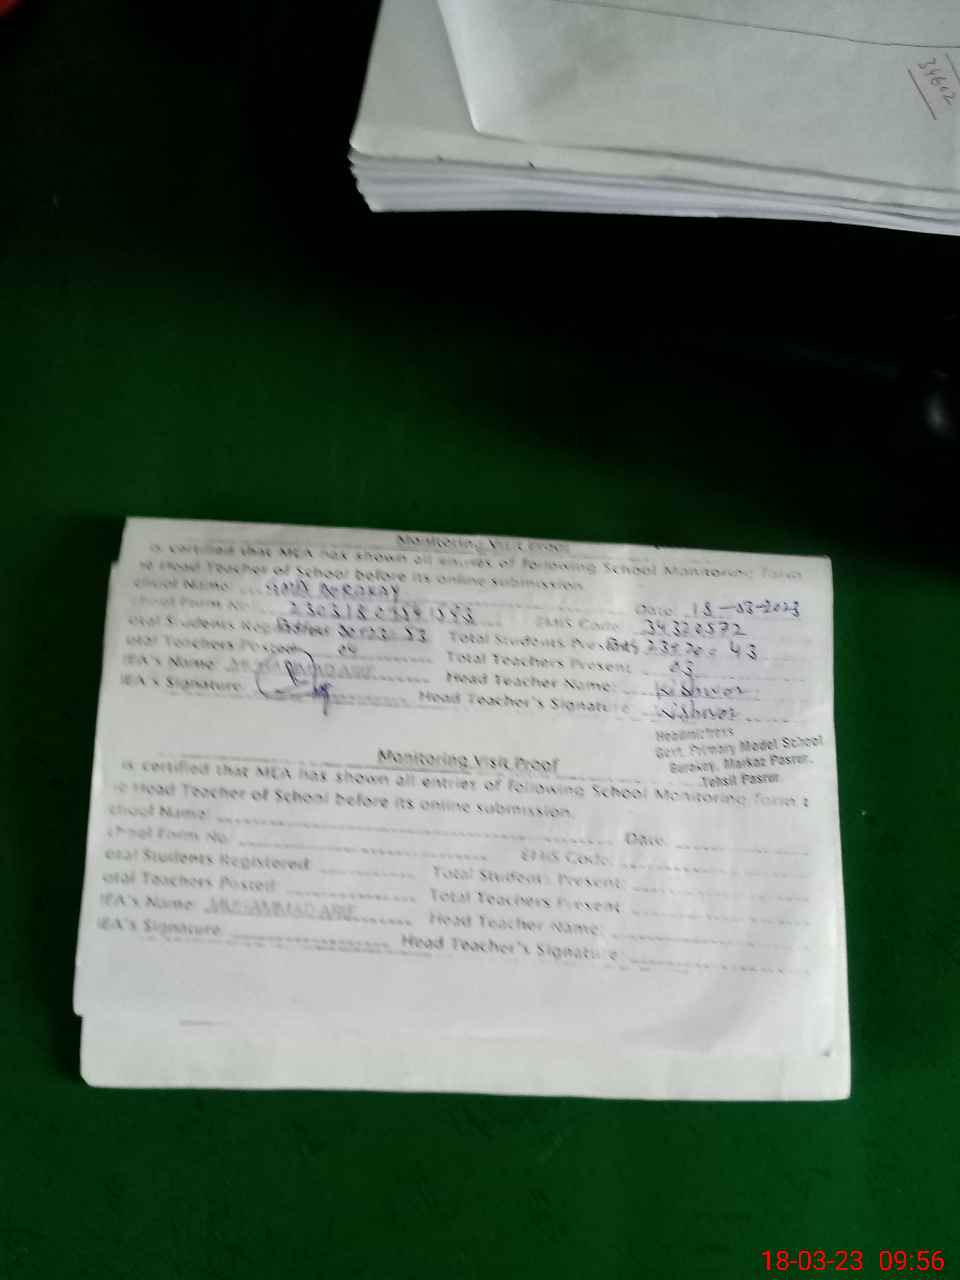 34602
Monitoring Visit Proof
is certified that MEA has shown all entries of following School Monitoring Form
e Head Teacher of School before its online submission.
chool Name: Date: 18-03-2023
chool Form No. EMIS Code: 34320572
otal Students Reg Total Students Pres 43
otal Teachers Posted 04 Total Teachers Present 03
EA's Name: MUHAMMAD ARIF Head Teacher Name:
EA's Signature: Head Teacher's Signature
Headmistress
Govt. Primary Model School
Burakay, Markaz Pasrur,
Tehsil Pasrur
Monitoring Visit Proof
is certified that MEA has shown all entries of following School Monitoring Form t
e Head Teacher of School before its online submission.
chool Name: Date:
chool Form No. EMIS Code:
otal Students Registered: Total Students Present:
otal Teachers Posted: Total Teachers Present
EA's Name: MUHAMMAD ARIF Head Teacher Name:
EA's Signature: Head Teacher's Signature:
18-03-23 09:56